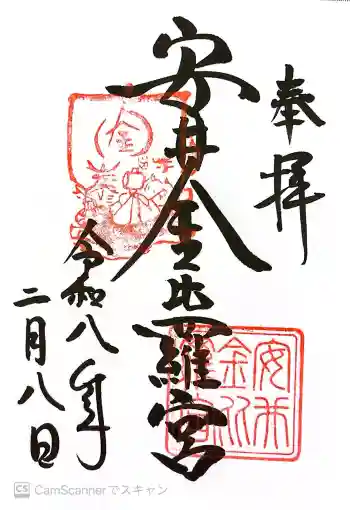 奉拝
安井金比羅宮
令和八年
二月八日
金
安井
金比
羅宮
CS CamScannerでスキャン